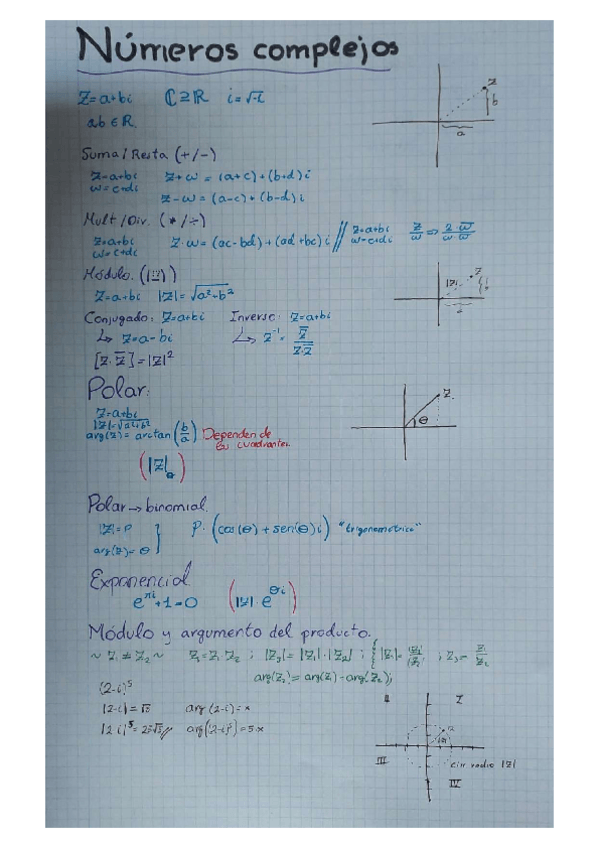 Números complejos
Z=a+bi ℂ⊇ℝ i=√-1
a b ∈ ℝ.
z
b
a
Suma/Resta (+/-)
z=a+bi z+w = (a+c)+(b+d)i
w=c+di
z-w = (a-c)+(b-d)i
Mult/Div. (*/÷)
z=a+bi z·w=(ac-bd)+(ad+bc)i // z=a+bi z/w => z·w̅/w·w̅
w=c+di w=c+di
Módulo. (|z|)
z=a+bi |z|=√a²+b²
|z| z
Conjugado: z=a+bi Inverso: z=a+bi
↳ z=a-bi ↳ z⁻¹ = z̅/z·z̅
[z·z̅]=|z|²
Polar:
z=a+bi
|z|=√a²+b²
arg(z)=arctan(b/a) Dependen de
su cuadrante.
(|z|θ)
z.
θ
Polar→binomial.
|z|=P
arg(z)=θ } P·(cos(θ)+sen(θ)i) "trigonometrica"
Exponencial
e^πi+1=0 (|z|·e^θi)
Módulo y argumento del producto.
~ z₁≠z₂ ~ z₃=z₁·z₂ ; |z₃|=|z₁|·|z₂| ;
arg(z₃)=arg(z₁)-arg(z₂);
(2-i)⁵
|2-i|=√5 arg(2-i)=x
|2-i|⁵=25√5// arg(2-i)⁵=5·x
II I
III IV
cir radio |z|